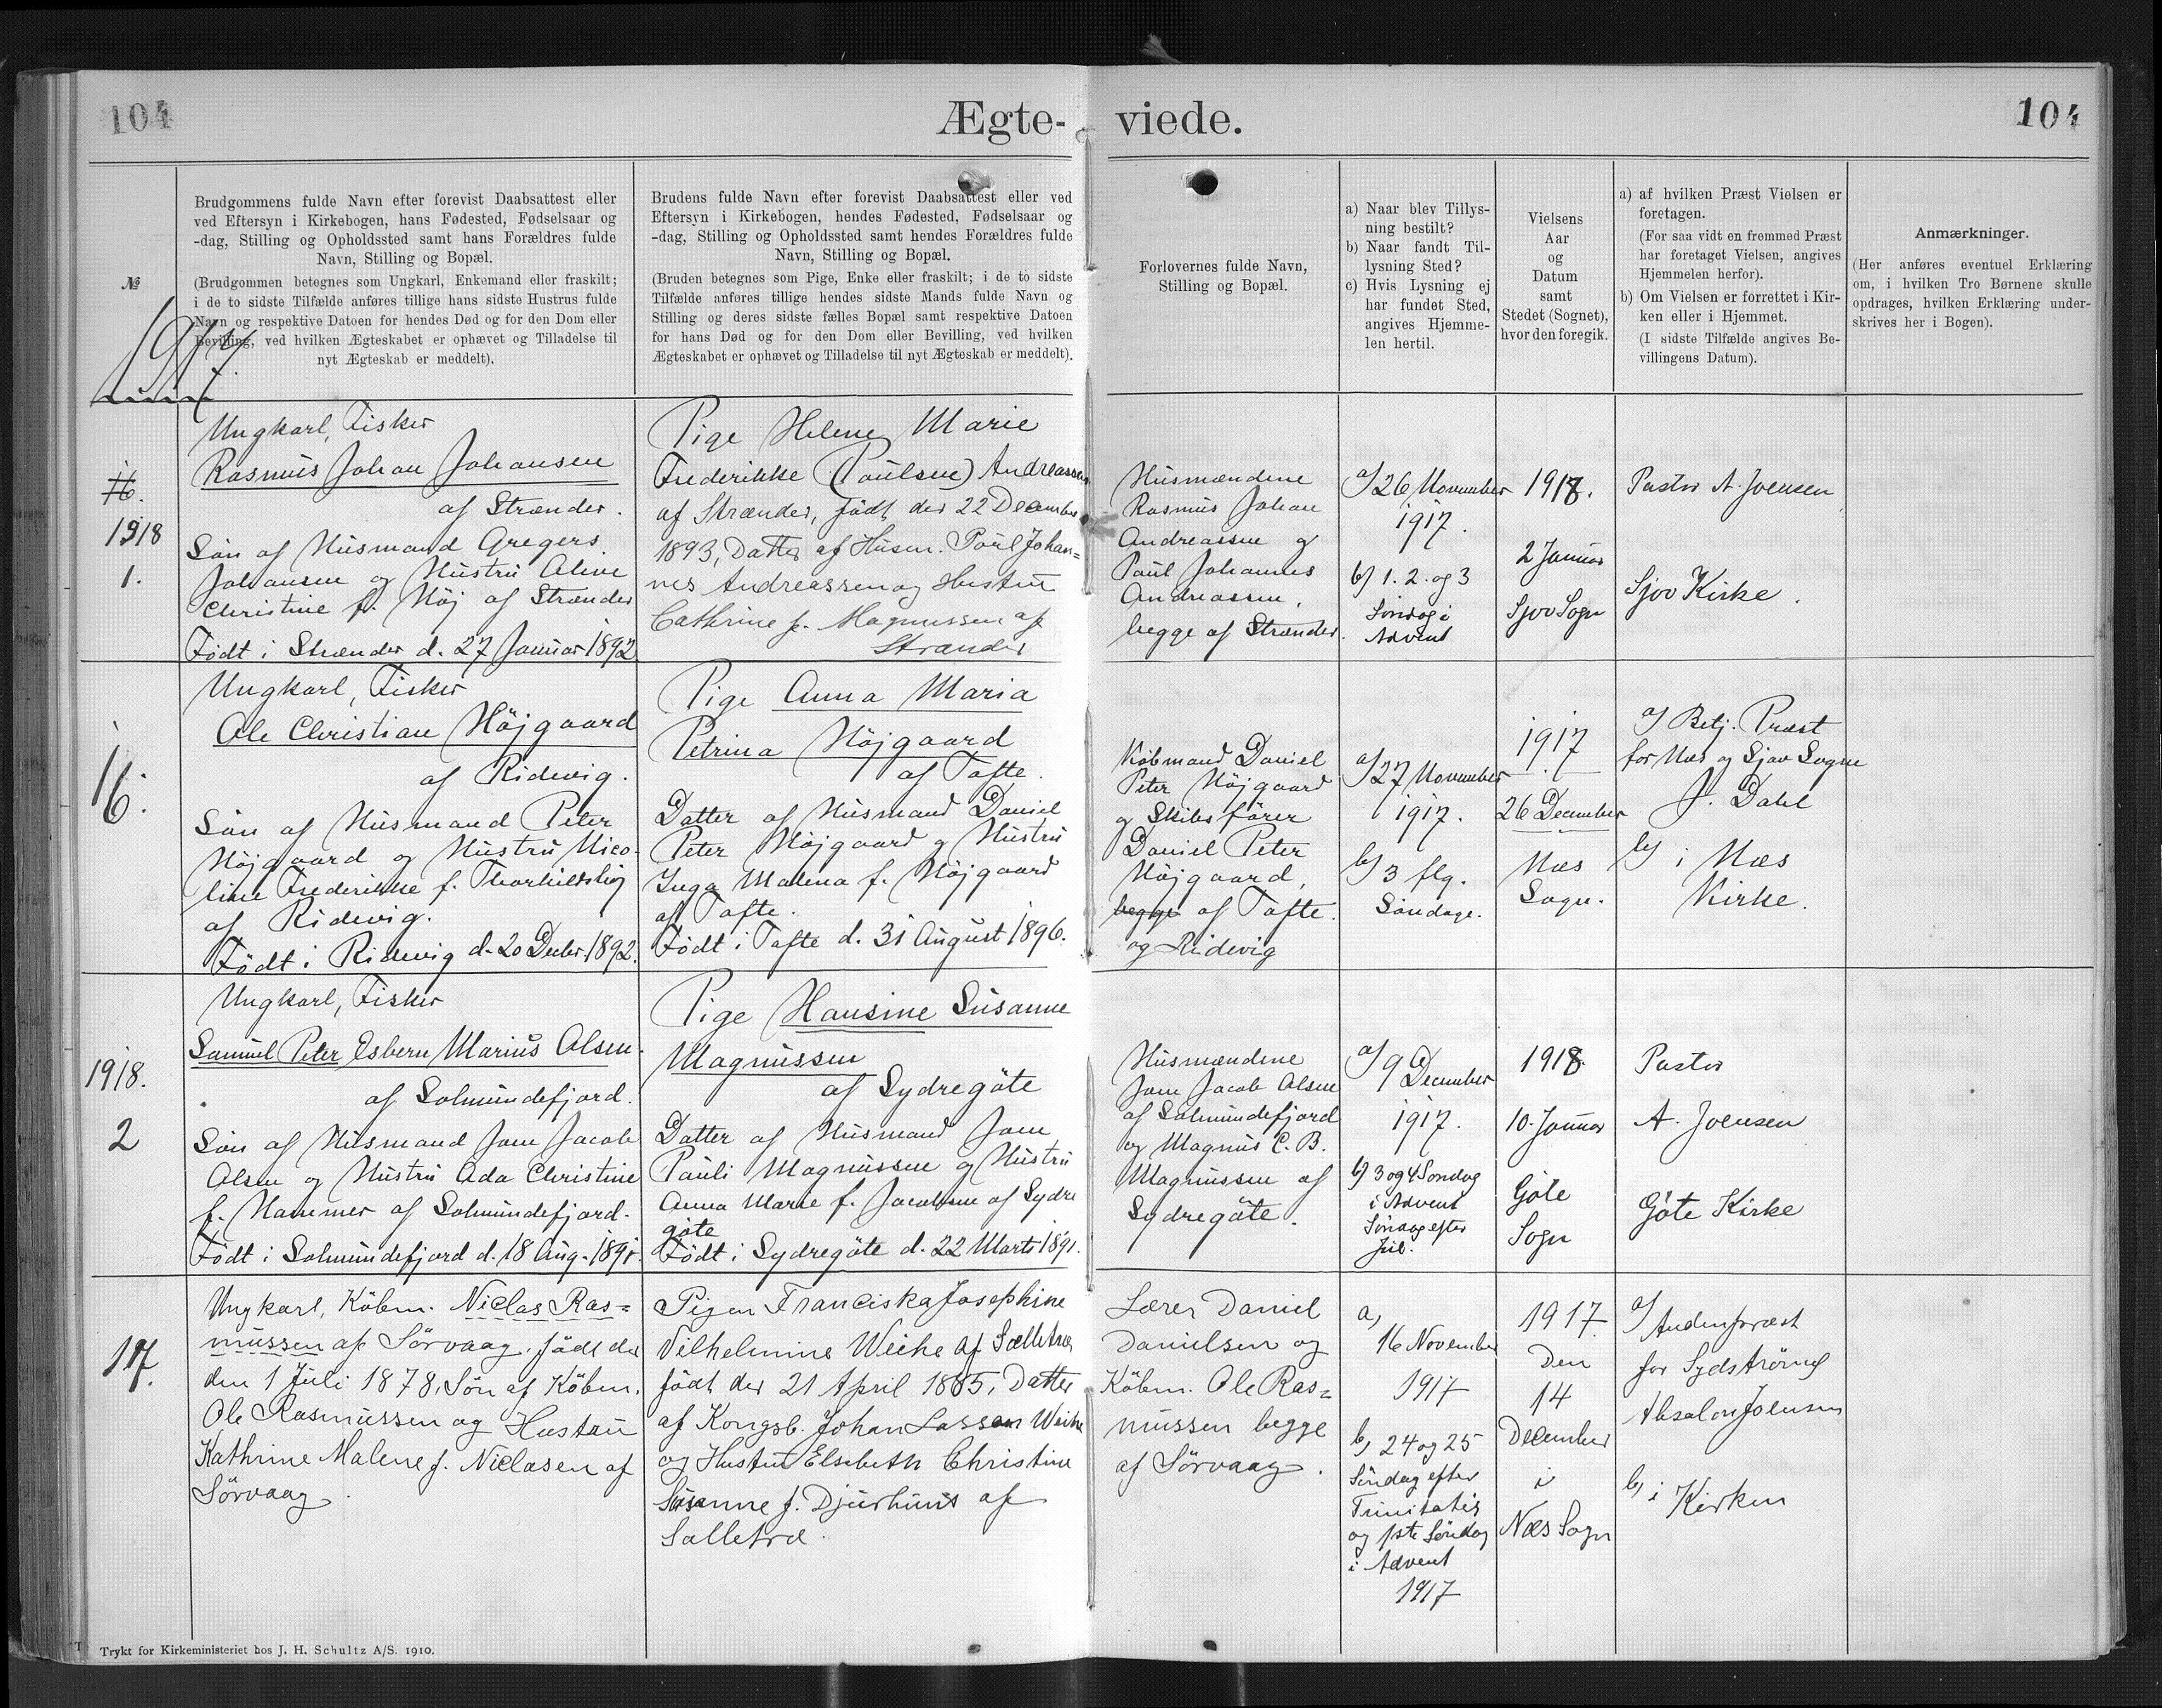 104
Ægte-
viede.
104
№
Brudgommens fulde Navn efter forevist Daabsattest eller
ved Eftersyn i Kirkebogen, hans Fødested, Fødselsaar og
-dag, Stilling og Opholdssted samt hans Forældres fulde
Navn, Stilling og Bopæl.
(Brudgommen betegnes som Ungkarl, Enkemand eller fraskilt;
i de to sidste Tilfælde anføres tillige hans sidste Hustrus fulde
Navn og respektive Datoen for hendes Død og for den Dom eller
Bevilling, ved hvilken Ægteskabet er ophævet og Tilladelse til
nyt Ægteskab er meddelt).
Brudens fulde Navn efter forevist Daabsattest eller ved
Eftersyn i Kirkebogen, hendes Fødested, Fødselsaar og
-dag, Stilling og Opholdssted samt hendes Forældres fulde
Navn, Stilling og Bopæl.
(Bruden betegnes som Pige, Enke eller fraskilt; i de to sidste
Tilfælde anføres tillige hendes sidste Mands fulde Navn og
Stilling og deres sidste fælles Bopæl samt respektive Datoen
for hans Død og for den Dom eller Bevilling, ved hvilken
Ægteskabet er ophævet og Tilladelse til nyt Ægteskab er meddelt).
Forlovernes fulde Navn,
Stilling og Bopæl.
a) Naar blev Tillys-
ning bestilt?
b) Naar fandt Til-
lysning Sted?
c) Hvis Lysning ej
har fundet Sted,
angives Hjemme-
len hertil.
Vielsens
Aar
og
Datum
samt
Stedet (Sognet),
hvor den foregik.
a) af hvilken Præst Vielsen er
foretagen.
(For saa vidt en fremmed Præst
har foretaget Vielsen, angives
Hjemmelen herfor).
b) Om Vielsen er forrettet i Kir-
ken eller i Hjemmet.
(I sidste Tilfælde angives Be-
villingens Datum).
Anmærkninger.
(Her anføres eventuel Erklæring
om, i hvilken Tro Børnene skulle
opdrages, hvilken Erklæring under-
skrives her i Bogen).
1917
16.
1918
1.
Ungkarl, Fisker
Rasmus Johan Johansen
af Strænder.
Søn af Husmand Gregers
Johansen og Hustru Olive
Christine f. Høj af Strænder
Født i Strænder d. 27 Januar 1892
Pige Helene Marie
Frederikke (Paulsen) Andreassen
af Strænder, født der 22 December
1893, Datter af Husm. Poul Johan=
nes Andreassen og Hustru
Cathrine f. Magnussen af
Strænder
Husmændene
Rasmus Johan
Andreassen og
Paul Johannes
Andreassen,
begge af Strænder.
a/ 26 November
1917.
b/ 1. 2. og 3
Søndag i
Advent
1918.
2 Januar
Sjov Sogn
Pastor A. Joensen
Sjov Kirke.
16.
Ungkarl, Fisker
Ole Christian Højgaard
af Ridevig.
Søn af Husmand Peter
Højgaard og Hustru Nico-
line Frederikke f. Thorkildshøj
af Ridevig.
Født i Ridevig d. 20 Decbr. 1892.
Pige Anna Maria
Petrina Højgaard
af Tofte.
Datter af Husmand Daniel
Peter Højgaard og Hustru
Inga Malena f. Højgaard
af Tofte.
Født i Tofte d. 31 August 1896.
Købmand Daniel
Peter Højgaard
og Skibsfører
Daniel Peter
Højgaard,
begge af Tofte.
og Ridevig
a/ 27 November
1917.
b/ 3 flg.
Søndage.
1917
26 December
Næs
Sogn.
a/ Betj. Præst
for Næs og Sjov Sogne
J. Dahl
b/ i Næs
Kirke.
1918.
2
Ungkarl, Fisker
Samuel Peter Esbern Marius Olsen
af Solmundefjord.
Søn af Husmand Jom Jacob
Olsen og Hustru Ada Christine
f. Hammer af Solmundefjord.
Født i Solmundefjord d. 18 Aug. 1891.
Pige Hansine Susanne
Magnussen
af Sydregøte
Datter af Husmand Jom
Pauli Magnussen og Hustru
Anna Marie f. Jacobsen af Sydre
gøte
Født i Sydregøte d. 22 Marts 1891.
Husmændene
Jom Jacob Olsen
af Solmundefjord
og Magnus C. B.
Magnussen af
Sydregøte.
a/ 9 December
1917.
b/ 3 og 4 Søndag
i Advent
Søndag efter
Jul.
1918.
10. Januar
Gøte
Sogn
Pastor
A. Joensen
Gøte Kirke
17.
Ungkarl, Købm. Niclas Ras=
mussen af Sørvaag, født der
den 1 Juli 1878, Søn af Købm.
Ole Rasmussen og Hustru
Kathrine Malene f. Niclasen af
Sørvaag.
Pigen Franciska Josephine
Vilhelmine Weihe af Selletræ,
født der 21 April 1885, Datter
af Kongsb. Johan Lassen Weihe
og Hustru Elsebeth Christine
Susanne f. Djurhuus af
Selletræ.
Lærer Daniel
Danielsen og
Købm. Ole Ras=
mussen begge
af Sørvaag.
a,
16 November
1917
b, 24 og 25
Søndag efter
Trinitatis
og 1ste Søndag
i Advent
1917
1917
Den
14
December
i
Næs Sogn
a/ Andenpræst
for Sydstrømø
Absalon Joensen
b, i Kirken
Trykt for Kirkeministeriet hos J. H. Schultz A/S. 1910.